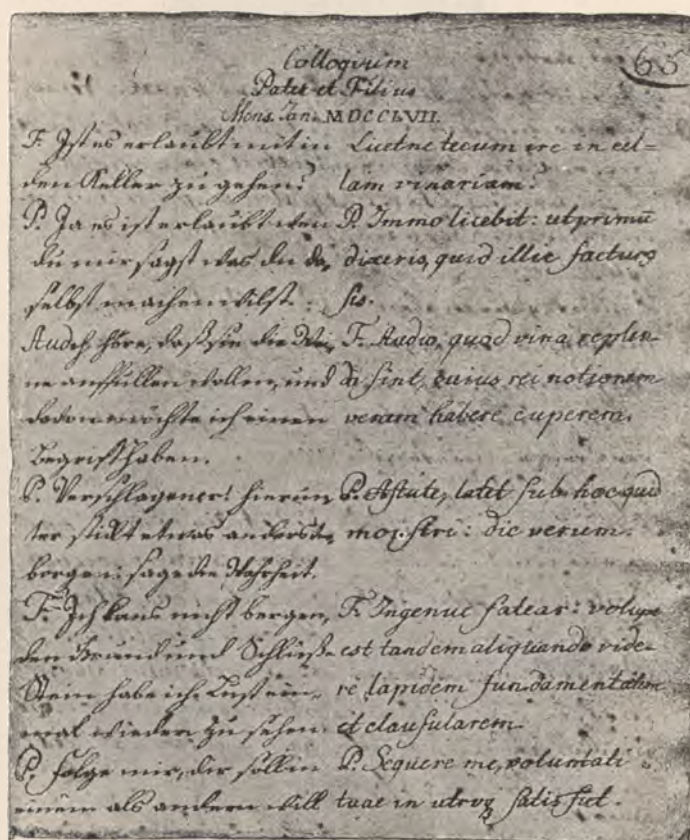 65
Colloquium
Pater et Filius
Mens. Jan. MDCCLVII.
F. Ist es erlaubt mit in
den Keller zu gehen?
P. Ja es ist erlaubt wen
du mir sagst was du da,
selbst machen wilst.
höre, daß sie die Wei,
ne auffüllen wollen, und
davon möchte ich einen
Begrif haben.
P. Verschlagener! hierun,
ter stickt etwas anders ver,
borgen: sage die Wahrheit.
F. Ich kans nicht bergen,
den Grund und Schließ-
Stein habe ich Lust ein-
mal wieder zu sehen
P. folge mir, dir soll in
einem als andern will
Licetne tecum ire in cel=
lam vinariam?
P. Immo licebit: ut primū
dixeris, quid illic facturus
sis.
F. Audio, quod vina replen-
da sint, cuius rei notionem
veram habere cuperem.
P. Astute, latet sub hoc quid
monstri: dic verum.
F. Ingenue fatear: volupe
est tandem aliquando vide-
re lapidem fundamentalem
et clausularem.
P. Sequere me, voluntati
tuae in utroq satis fiet.